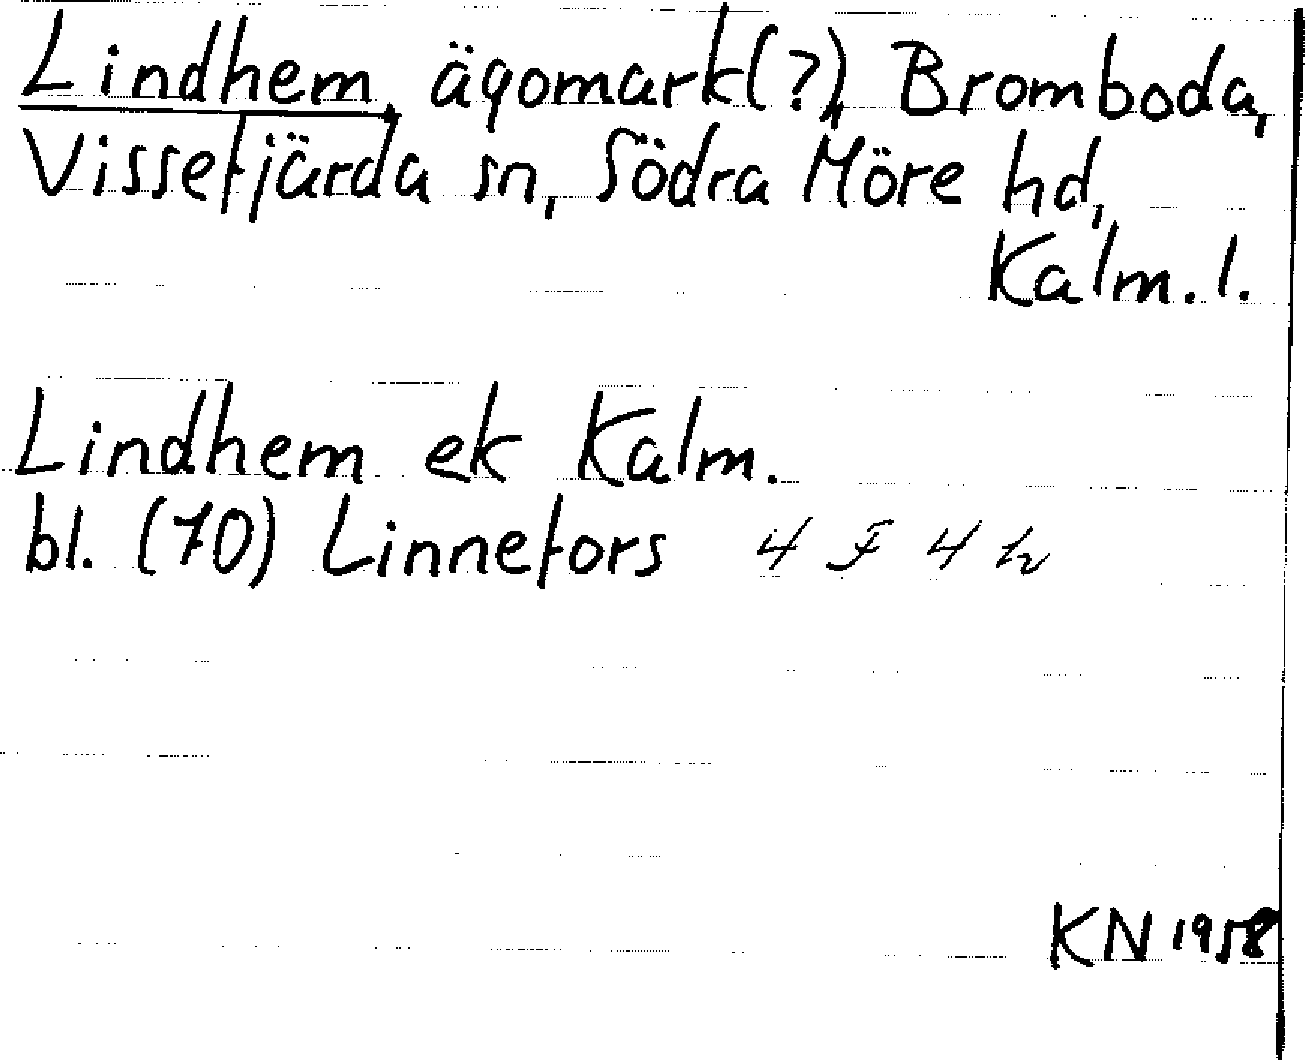 Lindhem, ägomark(?), Bromboda,
Vissefjärda sn, Södra Möre hd,
Kalm. l.
Lindhem ek Kalm.
bl. (70) Linnefors 4 F 4 h
KN 1958